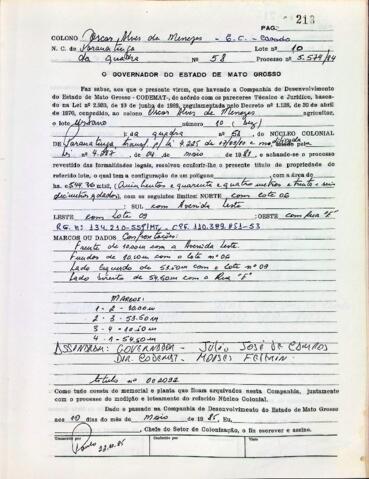 PAG. 213
COLONO Oscar Alves de Menezes - E.C. - Casado
N. C. de Paranatinga Lote nº 10
da quadra Nº 58 Processo 5.574/84
O GOVERNADOR DO ESTADO DE MATO GROSSO
Faz saber, aos que o presente virem, que havendo a Companhia de Desenvolvimento
do Estado de Mato Grosso - CODEMAT, de acordo com os pareceres Técnico e Jurídico, basea-
do na Lei nº 2.983, de 19 de junho de 1969, regulamentada pelo Decreto nº 1.138, de 20 de abril
de 1970, concedido, ao colono Oscar Alves de Menezes agricultor,
o lote Urbano número 10 (dez)
da quadra nº 58, do NÚCLEO COLONIAL
de Paranatinga pela
Lei nº de 04 de maio de 1981 e achando-se o presente processo
revestido das formalidades legais, resolveu conferir-lhe o presente título de propriedade do
referido lote, o qual tem a configuração de um polígono com a área de
544,36 (Quinhentos e quarenta e quatro metros e trinta e seis
decímetros), com os seguintes limites: NORTE com lote 06
SUL com Avenida Leste
LESTE com lote 09 :OESTE com Rua "F"
MARCOS OU DADOS Confrontações:
Frente de 10.00m com a Avenida Leste
Fundos de 10.10m com o lote nº 06
Lado Esquerdo de 53.50m com o lote nº 09
Lado Direito de 54.50m com a Rua "F"
MARCOS:
1 - 2 - 10.00m
2 - 3 - 53.50m
3 - 4 - 10.50m
4 - 1 - 54.50m
ASSINARAM: GOVERNADOR - JÚLIO JOSÉ DE CAMPOS
DIR. CODEMAT - MOISES FELTRIN
título nº 002092
Como tudo consta do memorial e planta que ficam arquivados nesta Companhia, juntamente
com o processo de medição e loteamento do referido Núcleo Colonial.
Dado e passado na Companhia de Desenvolvimento do Estado de Mato Grosso
aos 10 dias do mês de Maio de 1985. Eu,
, Chefe do Setor de Colonização, o fiz escrever e assino.
Escriturado por
Conferido por
Visto